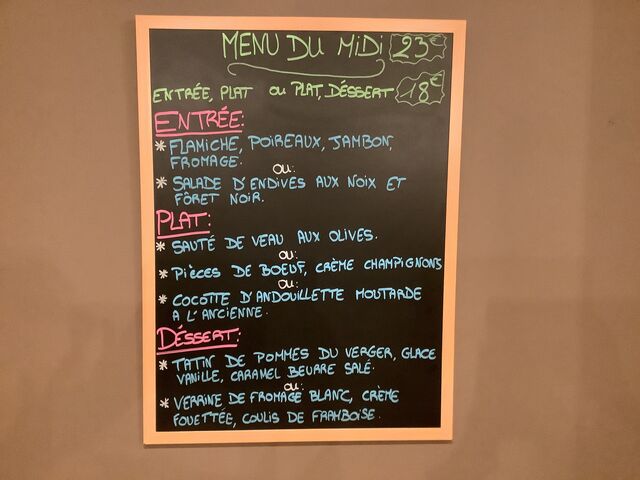 MENU DU MIDI 23€
ENTRÉE, PLAT OU PLAT, DÉSSERT 18€
ENTRÉE:
* FLAMICHE, POIREAUX, JAMBON,
FROMAGE.
OU:
* SALADE D'ENDIVES AUX NOIX ET
FÔRET NOIR.
PLAT:
* SAUTÉ DE VEAU AUX OLIVES.
OU:
* PIÈCES DE BOEUF, CRÈME CHAMPIGNONS
OU:
* COCOTTE D'ANDOUILLETTE MOUTARDE
A L'ANCIENNE.
DÉSSERT:
* TATIN DE POMMES DU VERGER, GLACE
VANILLE, CARAMEL BEURRE SALÉ.
OU:
* VERRINE DE FROMAGE BLANC, CRÈME
FOUETTÉE, COULIS DE FRAMBOISE.